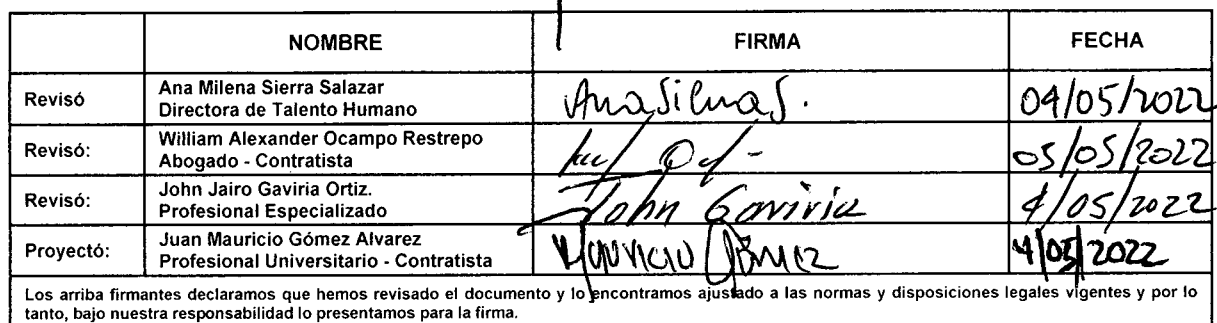 NOMBRE FIRMA FECHA
Revisó Ana Milena Sierra Salazar
Directora de Talento Humano 04/05/2022
Revisó: William Alexander Ocampo Restrepo
Abogado - Contratista 05/05/2022
Revisó: John Jairo Gaviria Ortiz.
Profesional Especializado John Gaviria 4/05/2022
Proyectó: Juan Mauricio Gómez Alvarez
Profesional Universitario - Contratista Mauricio Gómez 4/05/2022
Los arriba firmantes declaramos que hemos revisado el documento y lo encontramos ajustado a las normas y disposiciones legales vigentes y por lo
tanto, bajo nuestra responsabilidad lo presentamos para la firma.